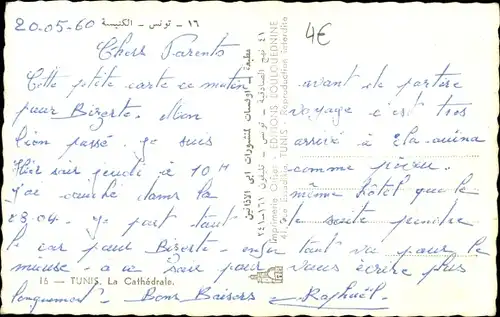 ١٦ - تونس - الكنيسة
20-05-60
4€
Chers Parents
Cette petite carte ce matin avant de partir
pour Bizerte. Mon voyage c'est très
bien passé. Je suis arrivé à Elaouina
Hier soir jeudi à 10H comme prévu.
J'ai couché dans la même hôtel que le
28.04. Je part tout de suite prendre
le car pour Bizerte. enfin tout va pour le
mieux - a ce soir pour vous écrire plus
longuement. Bons Baisers Raphaël.
16 — TUNIS. La Cathédrale.
Imprimerie Offset - EDITIONS BOULOUEDNINE
TUNIS - Reproduction Interdite